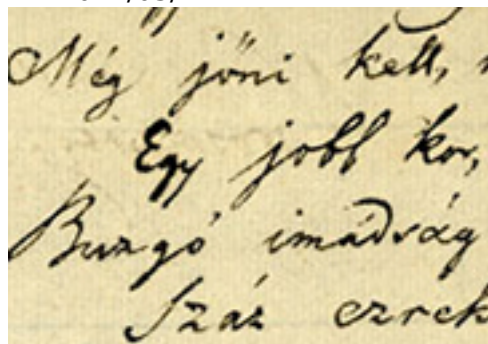 Még jőni kell,
Egy jobb kor,
Buzgó imadság
Száz ezrek